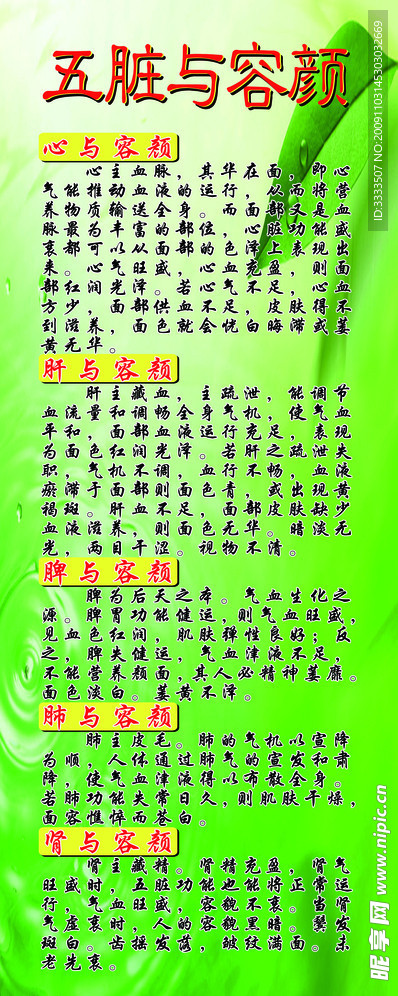 五脏与容颜
心与容颜
心主血脉，其华在面，即心
气能推动血液的运行，从而将营
养物质输送全身。而面部又是血
脉最为丰富的部位，心脏功能盛
衰都可以从面部的色泽表现出
来。心气旺盛，心血充盈，则面
部红润光泽。若心气不足，心血
方少，面部供血不足，皮肤得不
到滋养，面色就会恍白晦滞或萎
黄无华。
肝与容颜
肝主藏血，主疏泄，能调节
血流量和调畅全身气机，使气血
平和，面部血液运行充足，表现
为面色红润光泽。若肝之疏泄失
职，气机不调，血行不畅，血液
瘀滞于面部则面色青，或出现黄
褐斑。肝血不足，面部皮肤缺少
血液滋养，则面色无华。暗淡无
光，两目干涩。视物不清。
脾与容颜
脾为后天之本。气血生化之
源。脾胃功能健运，则气血旺盛，
见血色红润，肌肤弹性良好；反
之，脾失健运，气血津液不足，
不能营养颜面，其人必精神萎靡。
面色淡白。萎黄不泽。
肺与容颜
肺主皮毛。肺的气机以宣降
为顺，人体通过肺气的宣发和肃
降，使气血津液得以布散全身。
若肺功能失常日久，则肌肤干燥，
面容憔悴而苍白。
肾与容颜
肾主藏精。肾精充盈，肾气
旺盛时，五脏功能也能将正常运
行，气血旺盛，容貌不衰。当肾
气虚衰时，人的容貌黑暗。鬓发
斑白。齿摇发落，皱纹满面。未
老先衰。
ID:3333507 NO:20091103145303032669
昵享网 www.nipic.cn